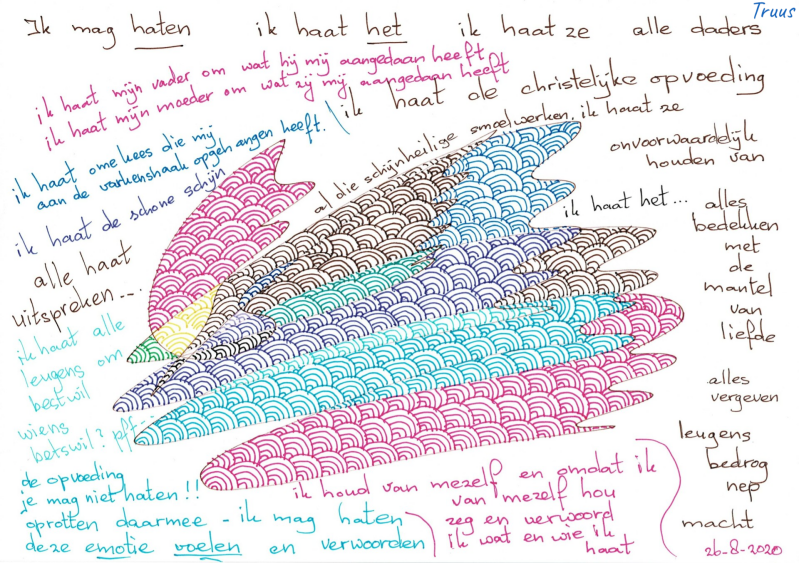 Truus
Ik mag haten   ik haat het   ik haat ze   alle daders
ik haat mijn vader om wat hij mij aangedaan heeft
ik haat mijn moeder om wat zij mij aangedaan heeft
ik haat de christelijke opvoeding
ik haat ome kees die mij
aan de varkenshaak opgehangen heeft.
al die schijnheilige smoelwerken. ik haat ze
onvoorwaardelijk
houden van
ik haat de schone schijn
ik haat het...
alles
bedekken
met
de
mantel
van
liefde
alles
vergeven
leugens
bedrog
nep
macht
alle haat
uitspreken...
ik haat alle
leugens om
bestwil
wiens
betswil? pff
de opvoeding
je mag niet haten!!
oprotten daarmee - ik mag haten
deze emotie voelen en verwoorden
ik houd van mezelf en omdat ik
van mezelf hou
zeg en verwoord
ik wat en wie ik
haat
26-8-2020